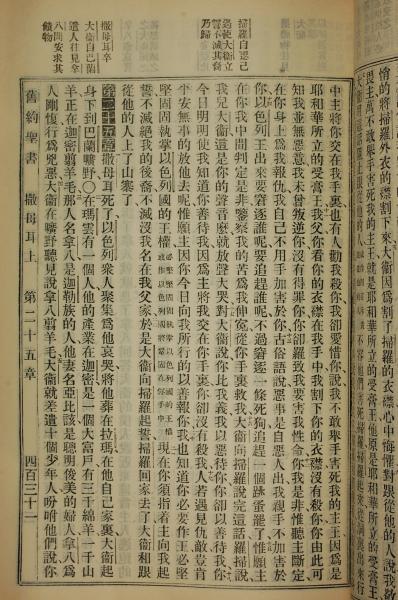 惜的將掃羅外衣的衣襟割下來大衛割了掃羅的衣襟心中悔
中主將你交在我手裏也有人勸我殺你我卻愛惜你說我不敢舉手害死我的主王因爲是
耶和華所立的受膏王我父你看你的衣襟在我手中我割下你的衣襟沒有殺你你由此可
知我並無惡意我未曾叛逆你沒有得罪你你卻羅致我要害我性命你我是非惟聽主斷定
在你身上爲我報仇我自己不用手加害於你古俗語說惡事是自惡人出我親手不加害於
你以色列王出來要窘逐誰呢要追趕誰呢不過窘逐一條死狗追趕一個跳蚤罷了惟願主
在你我中間判定是非鑒察我的苦爲我伸冤從你手裏救我大衛向掃羅說完這話掃羅說
我兒大衛這是你的聲音麼就放聲大哭對大衛說你比我義我以惡待你你卻以善待我你
今日明明使我知道你善待我因爲主將我交在你手裏你卻沒有殺我人若遇見仇敵豈肯
平安無事的放他去呢惟願主因你今日向我所行的以善報你我也知道你必要作王必堅
堅固固執掌以色列國的王權
現在你須指着主向我起
誓不滅絕我的後裔不滅沒我名在我父家於是大衛向掃羅起誓掃羅回家去了大衛和跟
從他的人上了山寨了
第二十五章撒母耳死了以色列衆人聚集爲他哀哭將他葬在拉瑪在他自己家裏大衛起
身下到巴蘭曠野〇在瑪雲有一個人他的產業在迦密是一個大富戶有三千綿羊一千山
羊正在迦密剪羊毛那人名拿八是迦勒族的人他妻名亞比該是聰明俊美的婦人拿八爲
人剛愎行爲兇惡大衛在曠野聽見說拿八剪羊毛大衛就差遣十個少年人吩咐他們說你
掃羅自認己
過使大衛立
誓不滅其裔
乃歸
撒母耳卒
大衛自巴蘭
遣人往見拿
八問安求其
餽物
舊約聖書 撒母耳上 第二十五章 四百三十一